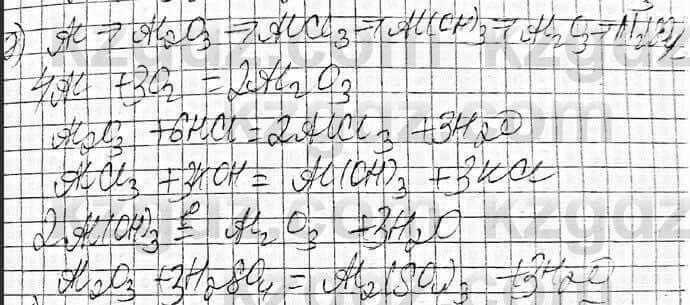 2) Al → Al₂O₃ → AlCl₃ → Al(OH)₃ → Al₂O₃ →
4Al + 3O₂ = 2Al₂O₃
Al₂O₃ + 6HCl = 2AlCl₃ + 3H₂O
AlCl₃ + 3KOH = Al(OH)₃ + 3KCl
2Al(OH)₃ = Al₂O₃ + 3H₂O
Al₂O₃ + 3H₂SO₄ = Al₂(SO₄)₃ + 3H₂O